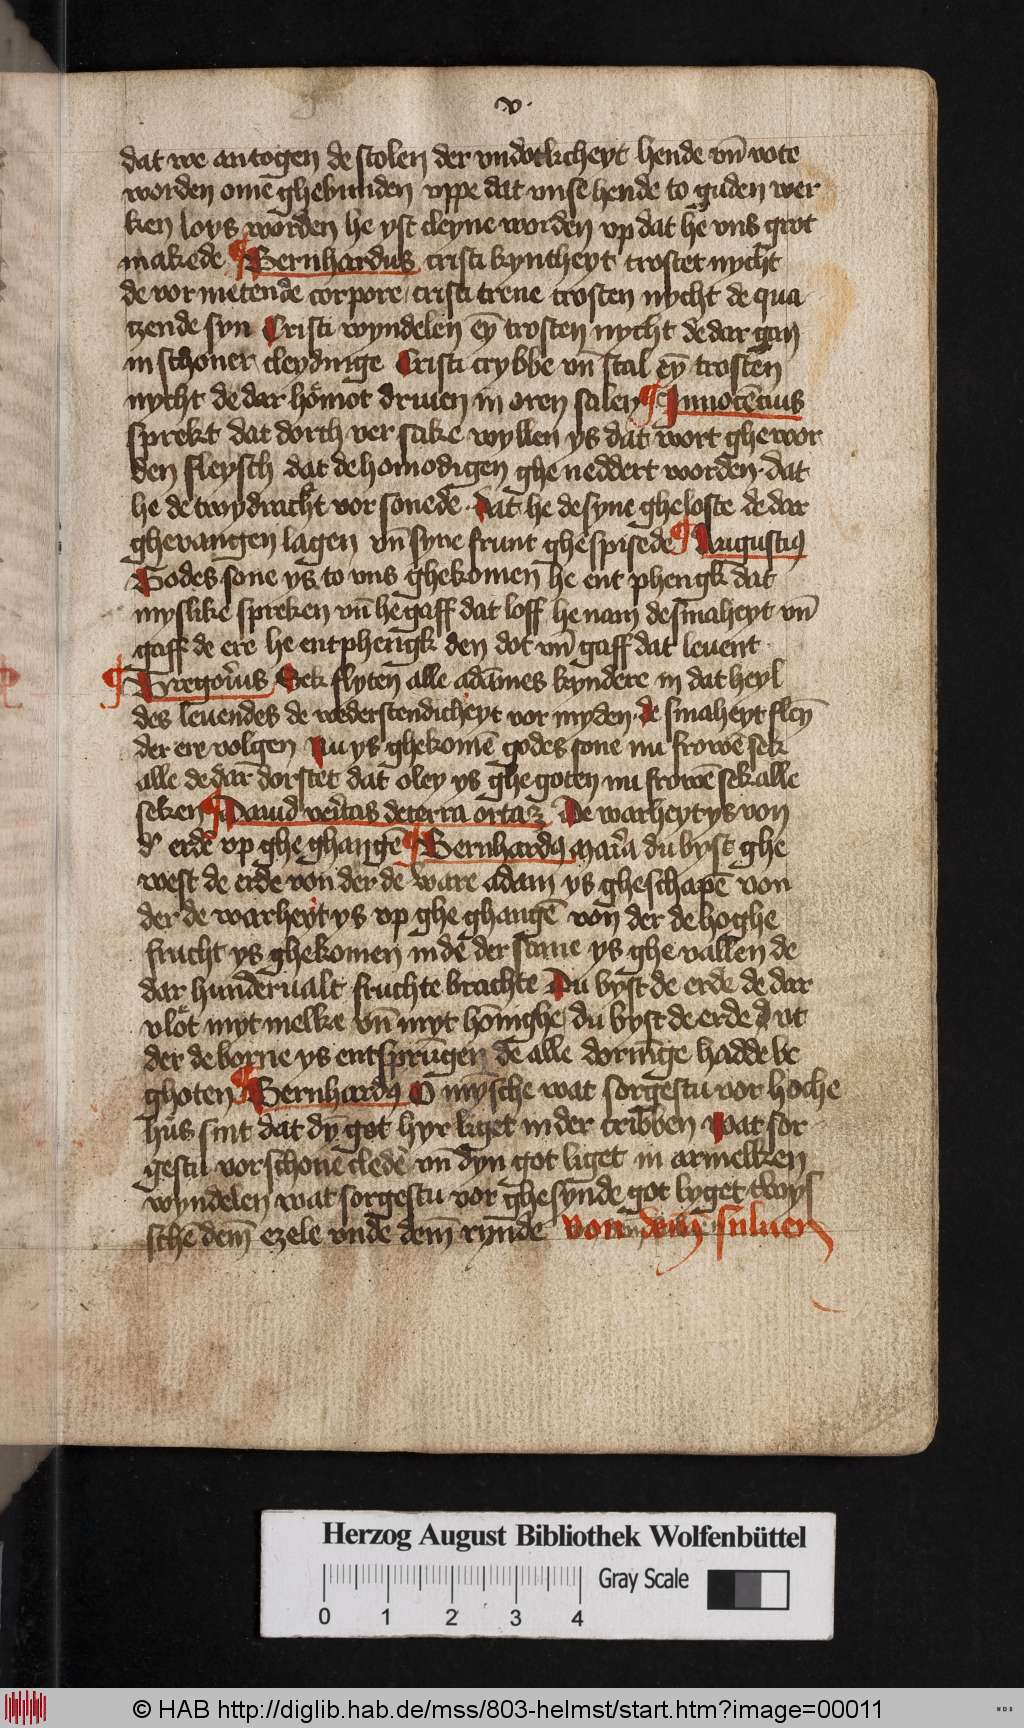 v.
dat we an togen de stolen der vndotlicheyt hende vn̄ vote
worden ome ghebunden vppe dat vnse hende to guden wer
ken loys worden he yst cleyne worden vp dat he vns grot
makede ¶ Bernhardus cristi kyntheyt trostet nycht
de vor metende corpore cristi trene trosten nycht de qua
tzende syn Cristi wyndelen ey̅ trosten nycht de dar gan
in schoner cleydinge Cristi crybbe vn̄ stal ey̅ trosten
nycht de dar homot driuen in oren salen ¶ Innocēcius
sprekt dat dorth ver stike wyllen ys dat wort ghewor
den fleysch dat de homodigen ghe neddert worden dat
he de twydracht vor sonede dat he de syne gheloste de dar
ghevangen lagen vn̄ syne frunt ghe spisede ¶ Augustiꝯ
Godes sone ys to vns ghekomen he ent phengk dat
myslike spreken vn̄ he gaff dat loff he nam de smaheyt vn̄
gaff de ere he entphengk den dot vn̄ gaff dat leuent
¶ Gregorius Sek flyten alle adames kyndere in dat heyl
des leuendes de wederstendicheyt vor myden de smaheyt fley̅
der ere volgen Nu ys ghekomē godes sone nu frowē sek
alle de dar dorstet dat oley ys ghe goten nu frowē sek alle
seken ¶ Dauid veritas de terra orta ꝫ De warheyt ys von
d' erde vp ghe ghangē ¶ Bernhardꝯ Maria du byst ghe
west de erde von der de ware adam ys gheschapē von
der de warheyt ys vp ghe ghangē von der de hoghe
frucht ys ghekomen in de der stime ys ghe vallen de
dar hundervalt fruchte brachte Du byst de erde de dar
vlot myt melke vn̄ myt honnighe du byst de erde vt
der de borne ys entsprungen de alle dorninge hadde be
ghoten ¶ Bernhardꝯ O mynsche wat sorgestu vor hoche
hus sint dat dy̅ got hyr liget in der cribben wat sor
gestu vor schone clede vn̄ dyn got liget in armelken
wyndelen wat sorgestu vor ghesynde got lyget twys
schē dem̄ ezele vnde dem̄ rynde von dem̄ suluen
Herzog August Bibliothek Wolfenbüttel
Gray Scale
0 1 2 3 4
© HAB http://diglib.hab.de/mss/803-helmst/start.htm?image=00011